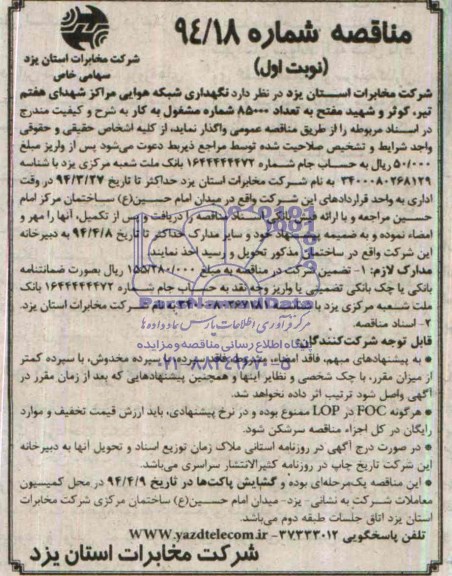 مناقصه شماره ۹۴/۱۸
(نوبت اول)
شرکت مخابرات استان یزد
سهامی خاص
شرکت مخابرات استان یزد در نظر دارد نگهداری شبکه هوایی مراکز شهدای هفتم
تیر، کوثر و شهید مفتح به تعداد ۸۵۰۰۰ شماره مشغول به کار به شرح و کیفیت مندرج
در اسناد مربوطه را از طریق مناقصه عمومی واگذار نماید، از کلیه اشخاص حقیقی و حقوقی
واجد شرایط و تشخیص صلاحیت شده توسط مراجع ذیربط دعوت می‌شود پس از واریز مبلغ
۵۰/۰۰۰ ریال به حساب جام شماره ۱۶۴۴۴۴۴۴۷۲ بانک ملت شعبه مرکزی یزد با شناسه
۳۴۰۰۰۸۰۲۶۸۱۲۹ به نام شرکت مخابرات استان یزد حداکثر تا تاریخ ۹۴/۳/۲۷ در وقت
اداری به واحد قراردادهای این شرکت واقع در میدان امام حسین(ع) ساختمان مرکز امام
حسین مراجعه و با ارائه فیش بانکی اسناد مناقصه را دریافت و پس از تکمیل، آنها را مهر و
امضاء نموده و به ضمیمه پیشنهاد خود و سایر مدارک حداکثر تا تاریخ ۹۴/۴/۸ به دبیرخانه
این شرکت واقع در ساختمان مذکور تحویل و رسید اخذ نمایند.
مدارک لازم: ۱- تضمین شرکت در مناقصه به مبلغ ۱۵۵/۳۸۰/۰۰۰ ریال بصورت ضمانتنامه
بانکی یا چک بانکی تضمینی یا واریز وجه نقد به حساب جام شماره ۱۶۴۴۴۴۴۴۷۲ بانک
ملت شعبه مرکزی یزد با شناسه به نام شرکت مخابرات استان یزد.
۲- اسناد مناقصه.
مرکز فرآوری اطلاعات پارس نماد داده ها
پایگاه اطلاع رسانی مناقصه و مزایده
۰۲۱-۸۸۳۴۹۶۷۰-۵
قابل توجه شرکت‌کنندگان:
• به پیشنهادهای مبهم، فاقد امضاء، مشروط، فاقد سپرده، یا سپرده مخدوش، با سپرده کمتر
از میزان مقرر، با چک شخصی و نظایر اینها و همچنین پیشنهادهایی که بعد از زمان مقرر در
آگهی واصل شود ترتیب اثر داده نخواهد شد.
• هرگونه FOC در LOP ممنوع بوده و در نرخ پیشنهادی، باید ارزش قیمت تخفیف و موارد
رایگان در کل اجزاء مناقصه سرشکن شود.
• در صورت درج آگهی در روزنامه استانی ملاک زمان توزیع اسناد و تحویل آنها به دبیرخانه
این شرکت تاریخ چاپ در روزنامه کثیرالانتشار سراسری می‌باشد.
• این مناقصه یک‌مرحله‌ای بوده و گشایش پاکت‌ها در تاریخ ۹۴/۴/۹ در محل کمیسیون
معاملات شرکت به نشانی- یزد- میدان امام حسین(ع) ساختمان مرکزی شرکت مخابرات
استان یزد اتاق جلسات طبقه دوم می‌باشد.
تلفن پاسخگویی ۳۷۲۳۳۰۱۲- WWW.yazdtelecom.ir
شرکت مخابرات استان یزد